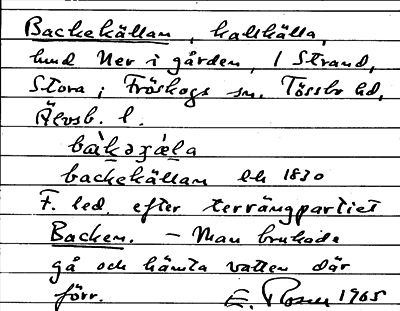 Backekällan, kallkälla,
hund Ner i gården, 1 Strand,
Stora; Fröskogs sn. Tössbo hd,
Älvsb. l.
bàkəʒǽla
backekällan lh 1830
F. led efter terrängpartiet
Backen. – Man brukade
gå och hämta vatten där
förr. E. Rosen 1965